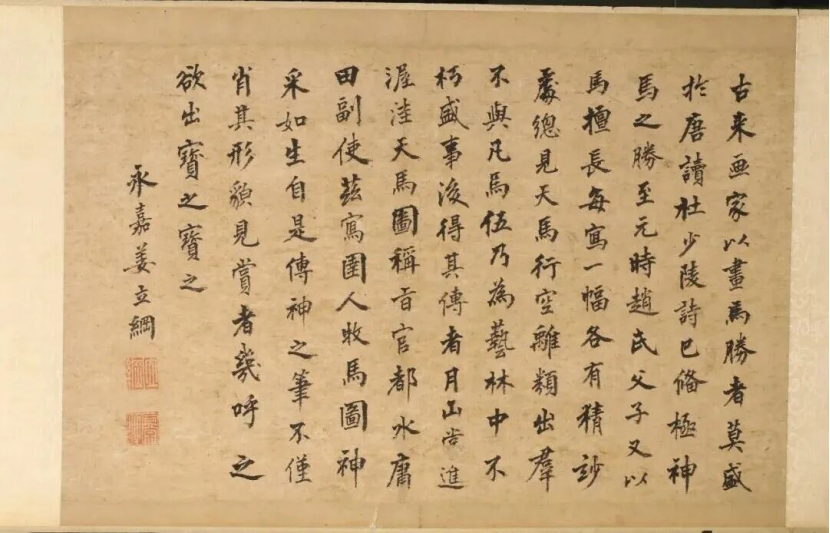 古来画家以畫馬勝者莫盛
扵唐讀杜少陵詩已俻極神
馬之勝至元時趙氏父子又以
馬擅長每寫一幅各有精妙
處總見天馬行空離類出羣
不與凡馬伍乃為藝林中不
朽盛事後得其傳者月山嘗進
渥洼天馬圖稱旨官都水庸
田副使茲寫圉人牧馬圖神
采如生自是傳神之筆不僅
肖其形貌見賞者幾呼之
欲出寶之寶之
永嘉姜立綱